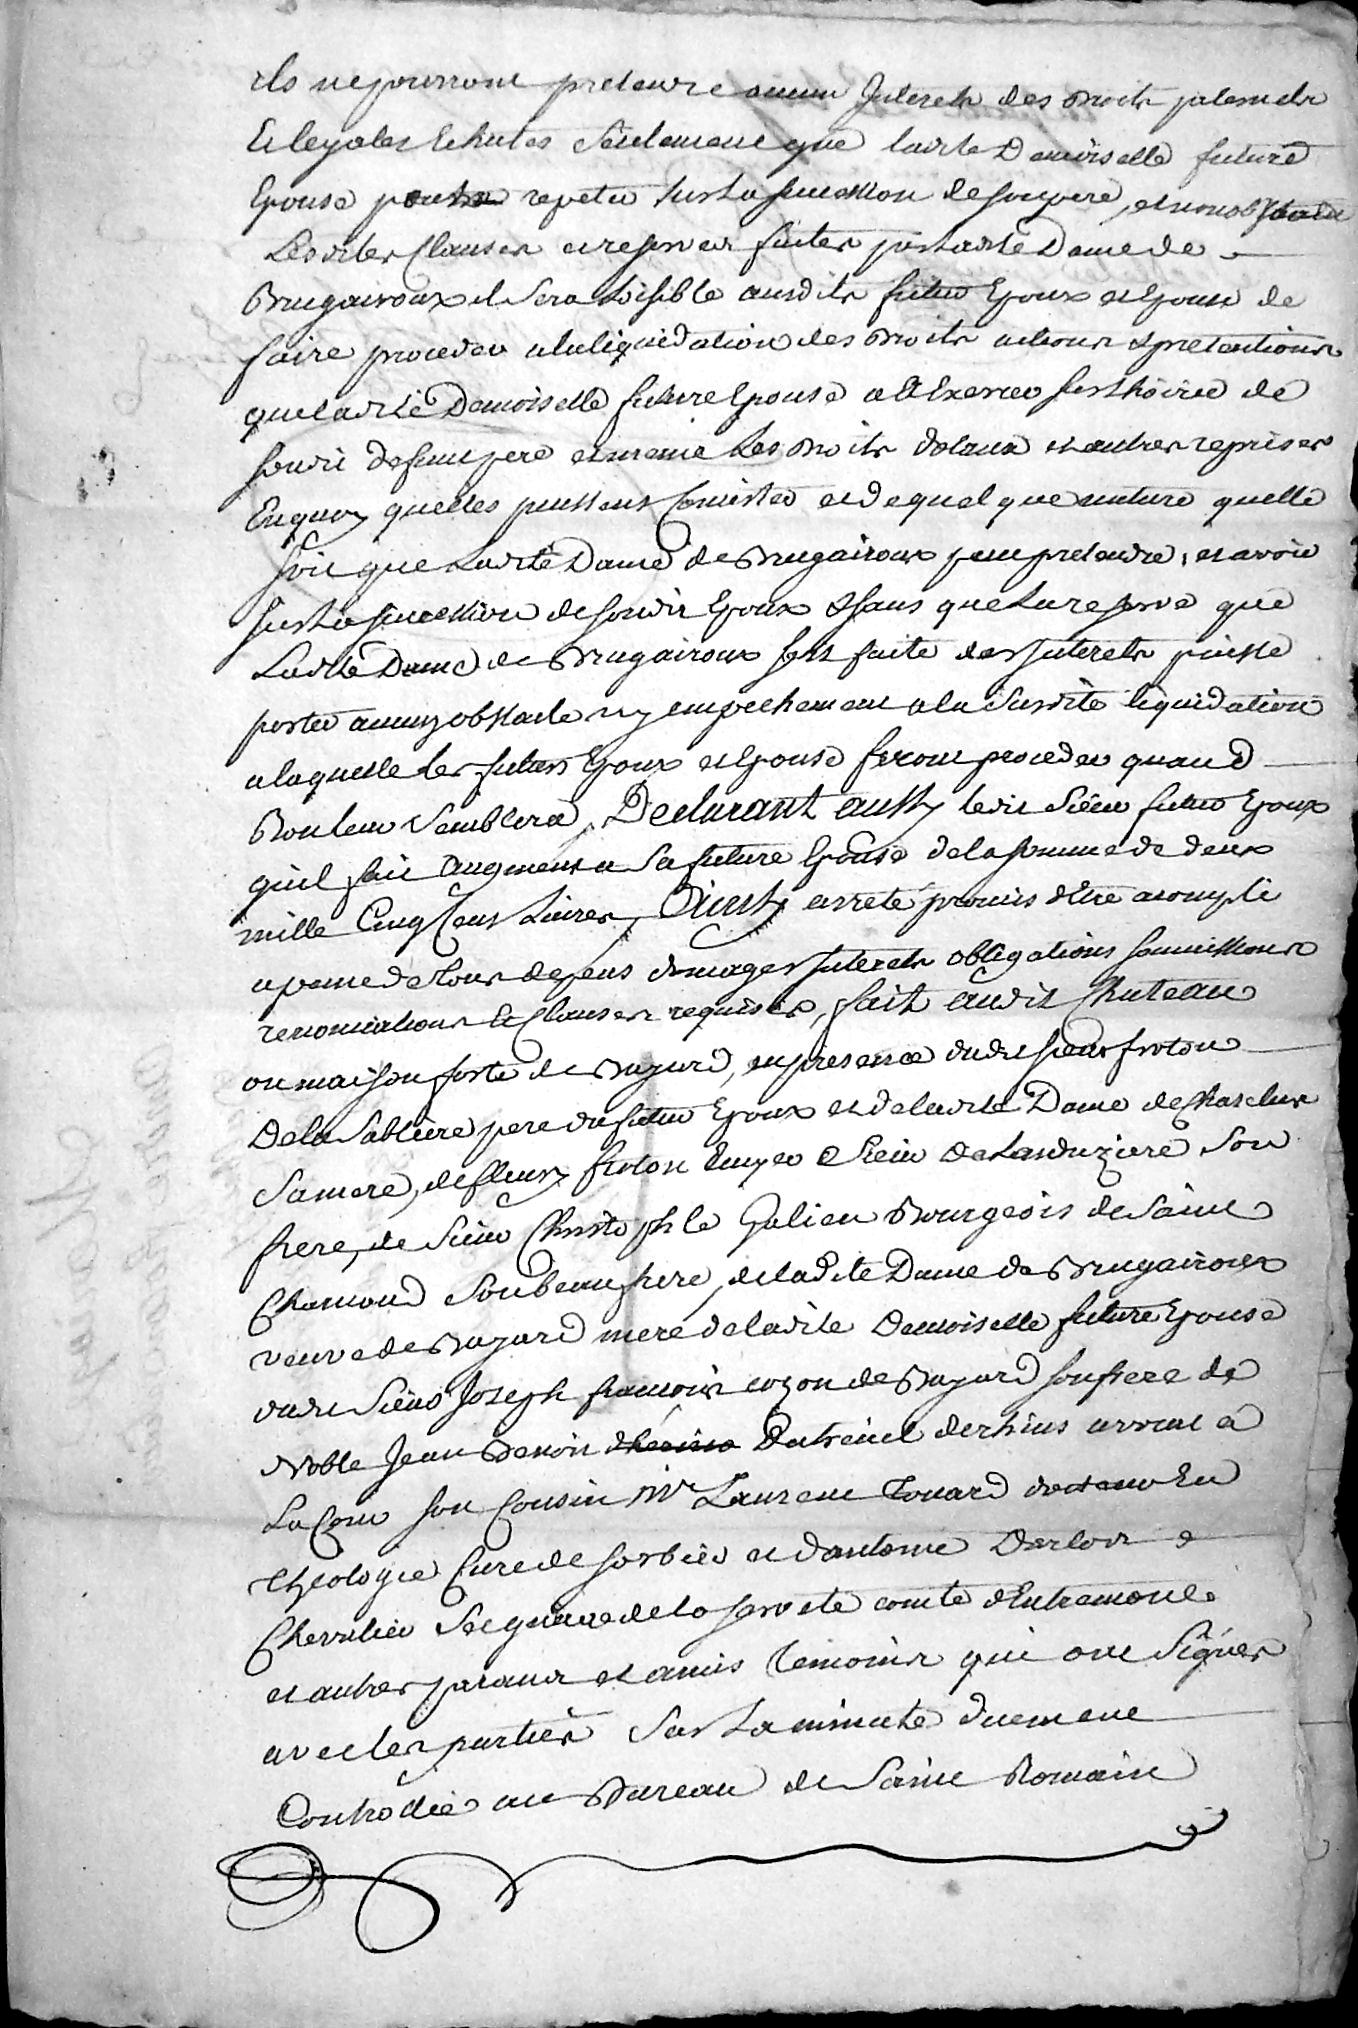 ils ne pourront pretendre aucun Interets des droits paternels
Et legales Echutes Seulement que ladite Demoiselle future
Epouse pourra repeter sur La succession de son pere, et nonobstant
Lesdites Clauses et reserves faites par ladite Dame de
Brugairoux il Sera Loisible ausdits futur Epoux et Epouse de
faire proceder a la liquidation des droits actions & pretentions
que ladite Demoiselle future Epouse a a Exercer sur lhoirie de
soudit defunt pere et meme Les droits dotaux et autres reprises
En quoy quelles puissent Consister et de quel que nature quelle
soit que Ladite Dame de Brugairoux peut pretendre, et avoir
sur La succession de soudit Epoux & sans que La reserve que
Ladite Dame de Brugairoux s'est faite des Interets puisse
porter aucun obstacle ny empechement a la Susdite liquidation
a laquelle les futurs Epoux et Epouse feront proceder quand
Bon leur Semblera, Declarant aussy ledit Sieur futur Epoux
quil fait augment a Sa future Epouse de la somme de deux
mille Cinq Cent Livres, Ainsy arreté promis d'Etre acompli
a peine de tous depens domages Interets obligations soumissions
renonciations & Clauses requises, fait audit Chateau
ou maison forte de Bayard, en presence dudit sieur froton
De la Sabliere pere du futur Epoux et de ladite Dame de Chaselur
Sa mere, de fleury froton Ecuyer Sieur De Landuziere Son
frere, de Sieur Christophle Galien Bourgeois de Saint
Chamond Son beau frere, de ladite Dame de Brugairoux
veuve de Bayard mere de ladite Demoiselle future Epouse
dudit Sieur Joseph francois cozon de Bayard son frere de
Noble Jean Benoit Dutreuil derhins avocat a
La Cour son Cousin Mr Laurent Touard docteur En
theologie Curé de sorbier et dantoine
Chevalier Seigneur de la comte d'Entremont
et autres parants et amis temoins qui ont Signés
avec les parties Sur La minute duement
Controllée au Bureau de Saint Romain